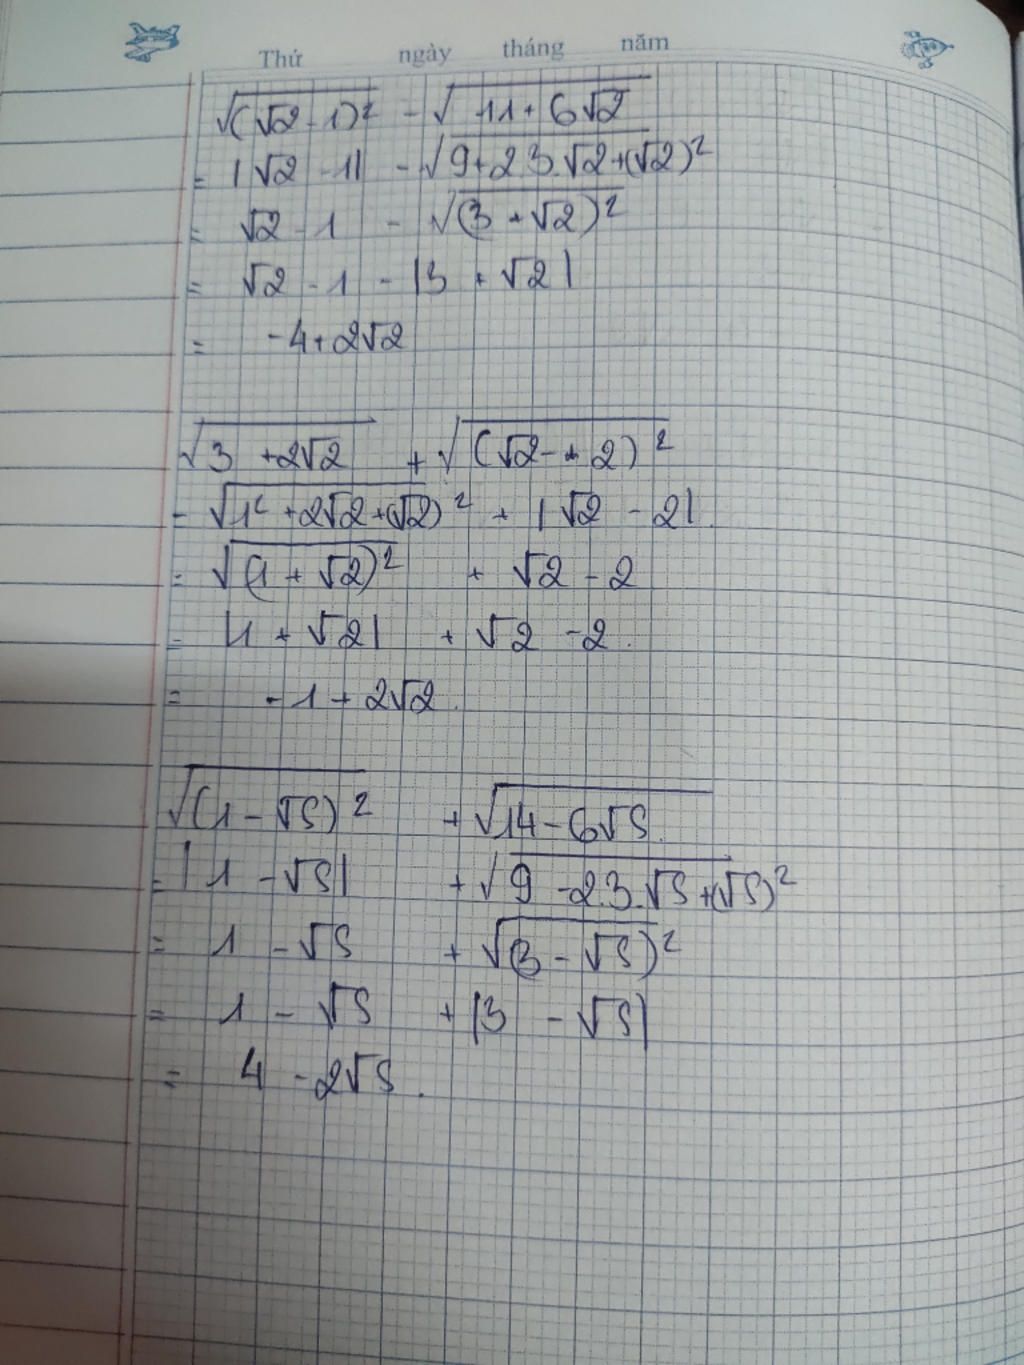 Thứ ngày tháng năm
√(√2 - 1)² - √11 + 6√2
= |√2 - 1| - √9 + 2.3.√2 + (√2)²
= √2 - 1 - √(3 + √2)²
= √2 - 1 - |3 + √2|
= -4 + 2√2
√3 + 2√2 + √(√2 - 2)²
= √1² + 2√2 + (√2)² + |√2 - 2|
= √(1 + √2)² + √2 - 2
= |1 + √2| + √2 - 2.
= -1 + 2√2.
√(1 - √5)² + √14 - 6√5
= |1 - √5| + √9 - 2.3.√5 + (√5)²
= 1 - √5 + √(3 - √5)²
= 1 - √5 + |3 - √5|
= 4 - 2√5.